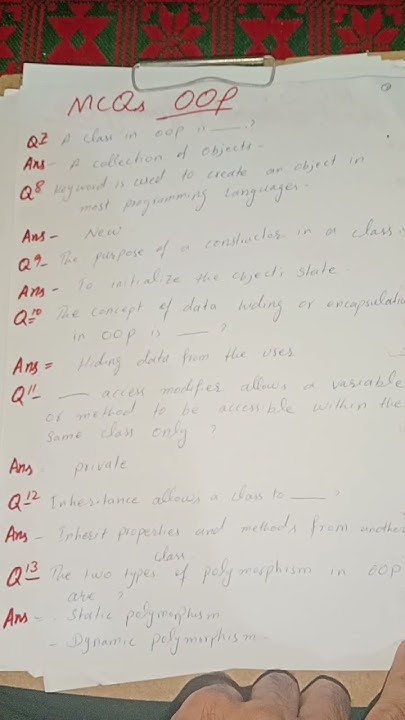 MCQs OOP
Q7 A class in OOP is ____ ?
Ans - A collection of objects.
Q8 Keyword is used to create an object in
most programming languages.
Ans - New
Q9- The purpose of a constructor in a class.
Ans - To initialize the object's state.
Q10 The concept of data hiding or encapsulatio
in OOP is ____ ?
Ans = Hiding data from the uses
Q11 ____ access modifier allows a variable
or method to be accessible within the
same class only ?
Ans: private
Q12 Inheritance allows a class to ____ ?
Ans - Inherit properties and methods from another
class.
Q13 The two types of polymorphism in OOP
are ?
Ans = - Static polymorphism
- Dynamic polymorphism.